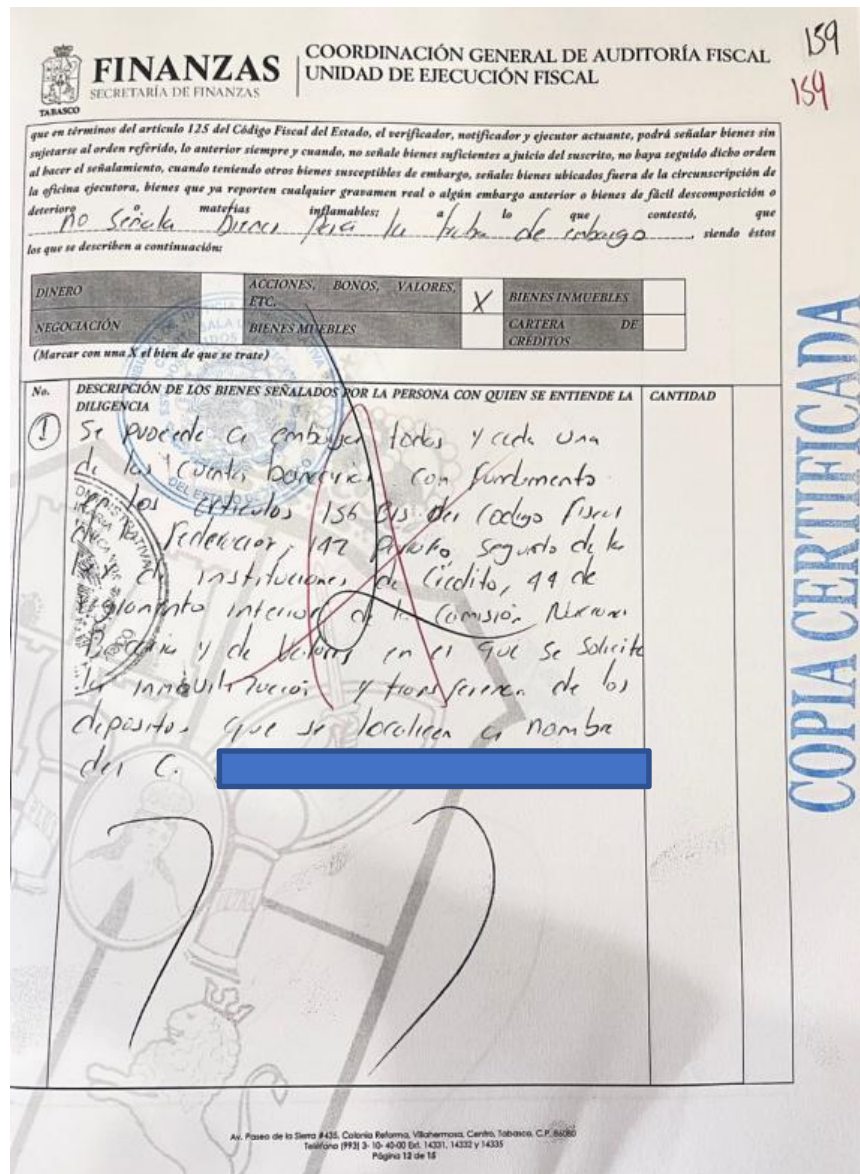 159
159
FINANZAS
SECRETARÍA DE FINANZAS
TABASCO
COORDINACIÓN GENERAL DE AUDITORÍA FISCAL
UNIDAD DE EJECUCIÓN FISCAL
que en términos del artículo 125 del Código Fiscal del Estado, el verificador, notificador y ejecutor actuante, podrá señalar bienes sin
sujetarse al orden referido, lo anterior siempre y cuando, no señale bienes suficientes a juicio del suscrito, no haya seguido dicho orden
al hacer el señalamiento, cuando teniendo otros bienes susceptibles de embargo, señale: bienes ubicados fuera de la circunscripción de
la oficina ejecutora, bienes que ya reporten cualquier gravamen real o algún embargo anterior o bienes de fácil descomposición o
deterioro o materias inflamables; a lo que contestó, que
no señala bienes para la traba de embargo, siendo éstos
los que se describen a continuación:
DINERO ACCIONES, BONOS, VALORES, ETC. X BIENES INMUEBLES
NEGOCIACIÓN BIENES MUEBLES CARTERA DE CRÉDITOS
(Marcar con una X el bien de que se trate)
No. DESCRIPCIÓN DE LOS BIENES SEÑALADOS POR LA PERSONA CON QUIEN SE ENTIENDE LA DILIGENCIA CANTIDAD
1 Se procede a embargar todas y cada una
de las cuenta bancarias con fundamento
en los artículos 156 Bis del Codigo Fiscal
de la Federacion, 142 parrafo segundo de la
Ley de instituciones de Credito, 44 de
reglamento interior de la Comisión Nacional
Bancaria y de Valores en el que se Solicita
la inmovilizacion y transferencia de los
depositos que se localicen a nombre
del C.
COPIA CERTIFICADA
Av. Paseo de la Sierra #435, Colonia Reforma, Villahermosa, Centro, Tabasco, C.P. 86080
Teléfono (993) 3-10-40-00 Ext. 14331, 14332 y 14335
Página 12 de 15